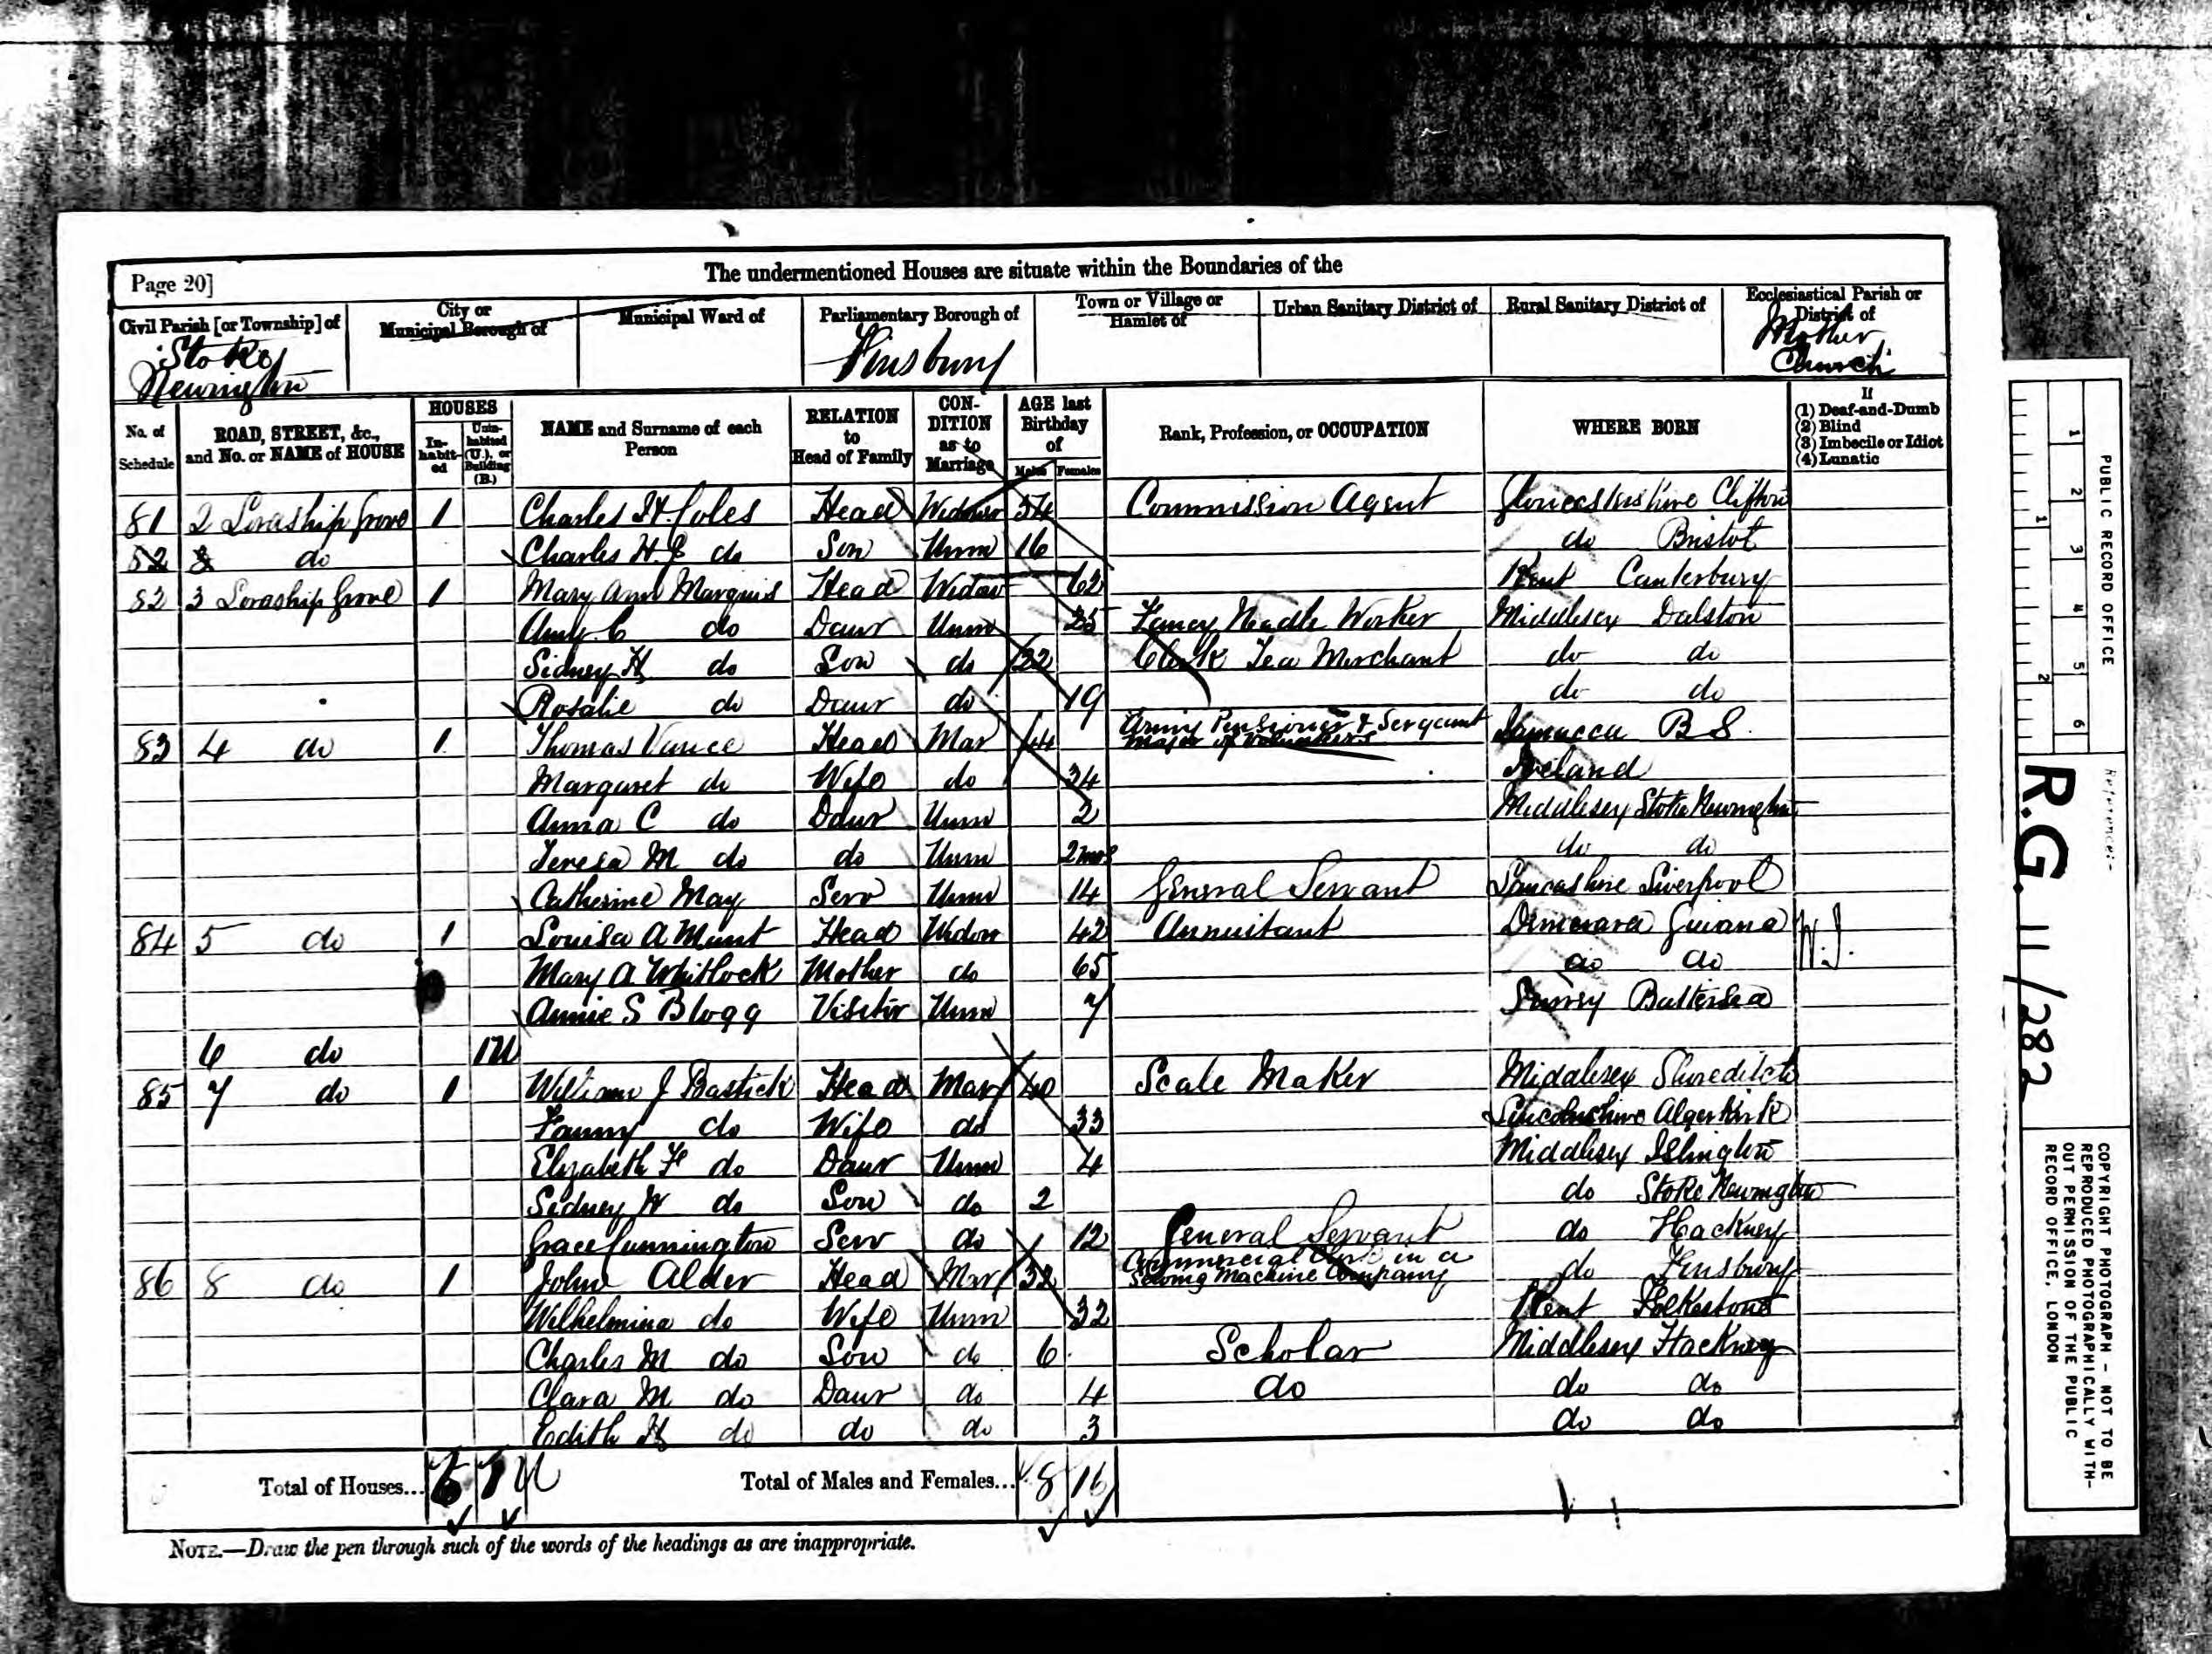 Page 20]
The undermentioned Houses are situate within the Boundaries of the
Civil Parish [or Township] of
City or
Municipal Borough of
Municipal Ward of
Parliamentary Borough of
Town or Village or
Hamlet of
Urban Sanitary District of
Rural Sanitary District of
Ecclesiastical Parish or
District of
Stoke
Newington
Finsbury
Mother
Church
No. of
Schedule
ROAD, STREET, &c.,
and No. or NAME of HOUSE
HOUSES
In-
habit-
ed
Unin-
habited
(U.), or
Building
(B.)
NAME and Surname of each
Person
RELATION
to
Head of Family
CON-
DITION
as to
Marriage
AGE last
Birthday
of
Males
Females
Rank, Profession, or OCCUPATION
WHERE BORN
If
(1) Deaf-and-Dumb
(2) Blind
(3) Imbecile or Idiot
(4) Lunatic
81 2 Lordship Grove 1 Charles H. Coles Head Widower 54 Commission Agent Gloucestershire Clifton
82 3 do Charles H. J. do Son Unm 16 do Bristol
82 3 Lordship Grove 1 Mary Ann Marquis Head Widow 62 Kent Canterbury
Amy C do Daur Unm 25 Fancy Needle Worker Middlesex Dalston
Sidney H do Son do 22 Clerk Tea Merchant do do
Rosalie do Daur do 19 do do
83 4 do 1 Thomas Vance Head Mar 44 Army Pensioner & Sergeant
Major of Volunteers Jamacca B S.
Margaret do Wife do 34 Ireland
Anna C do Daur Unm 2 Middlesex Stoke Newington
Teresa M do do Unm 2 mos do do
Catherine May Serv Unm 14 General Servant Lancashire Liverpool
84 5 do 1 Louisa A Munt Head Widow 42 Annuitant Demerara Guiana W.I.
Mary A. Whitlock Mother do 65 do do
Annie S Blogg Visitor Unm 7 Surrey Battersea
6 do 1U
85 7 do 1 William J Bastick Head Mar 40 Scale Maker Middlesex Shoreditch
Fanny do Wife do 33 Lincolnshire Algerkirk
Elizabeth F do Daur Unm 4 Middlesex Islington
Sidney W do Son do 2 do Stoke Newington
Grace Cunnington Serv do 12 General Servant do Hackney
86 8 do 1 John Alder Head Mar 32 Commercial Clerk in a
Sewing Machine Company do Finsbury
Wilhelmina do Wife Unm 32 Kent Folkestone
Charles M do Son do 6 Scholar Middlesex Hackney
Clara M do Daur do 4 do do do
Edith H do do do 3 do do
Total of Houses... 1U
Total of Males and Females... 8 16
NOTE.—Draw the pen through such of the words of the headings as are inappropriate.
1 2 3 4 5 6
1 2
PUBLIC RECORD OFFICE
Reference:-
R.G. 11/282
COPYRIGHT PHOTOGRAPH - NOT TO BE
REPRODUCED PHOTOGRAPHICALLY WITH-
OUT PERMISSION OF THE PUBLIC
RECORD OFFICE, LONDON